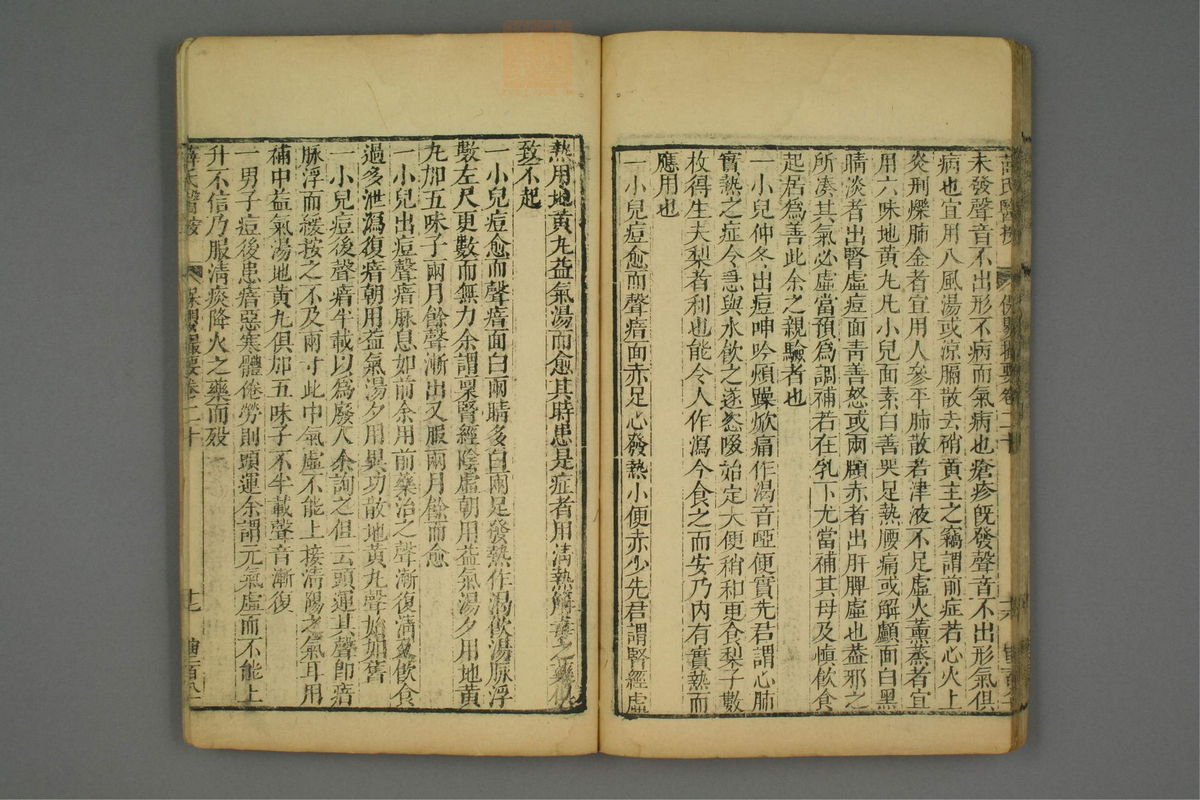 薛氏醫按 保嬰撮要卷二十
未發聲音不出形不病而氣病也瘡疹既發聲音不出形氣俱
病也宜用八風湯或涼膈散去硝黃主之竊謂前症若心火上
炎刑爍肺金者宜用人參平肺散若津液不足虛火薰蒸者宜
用六味地黃丸凡小兒面素白善哭足熱腰痛或解顱面白黑
睛淡者出腎虛痘面青善怒或兩頤赤者出肝脾虛也蓋邪之
所湊其氣必虛當預為調補若在乳下尤當補其母及慎飲食
起居為善此余之親驗者也
一小兒仲冬出痘呻吟煩躁焮痛作渴音啞便實先君謂心肺
實熱之症令急與水飲之遂恣啜始定大便稍和更食梨子數
枚得生夫梨者利也能令人作瀉今食之而安乃內有實熱而
應用也
一小兒痘愈而聲瘖面赤足心發熱小便赤少先君謂腎經虛
熱用地黃丸益氣湯而愈其時患是症者用清熱解毒之藥俱
致不起
一小兒痘愈而聲瘖面白兩睛多白兩足發熱作渴飲湯脉浮
數左尺更數而無力余謂稟腎經陰虛朝用益氣湯夕用地黃
丸加五味子兩月餘聲漸出又服兩月餘而愈
一小兒出痘聲瘖脉息如前余用前藥治之聲漸復清氣飲食
過多泄瀉復瘖朝用益氣湯夕用異功散地黃丸聲始如舊
一小兒痘後聲瘖半載以為廢人余詢之但云頭運其聲即瘖
脉浮而緩按之不及兩寸此中氣虛不能上接清陽之氣耳用
補中益氣湯地黃丸俱加五味子不半載聲音漸復
一男子痘後患瘖惡寒體倦勞則頭運余謂元氣虛而不能上
升不信乃服清痰降火之藥而歿
薛氏醫按 保嬰撮要卷二十 十七